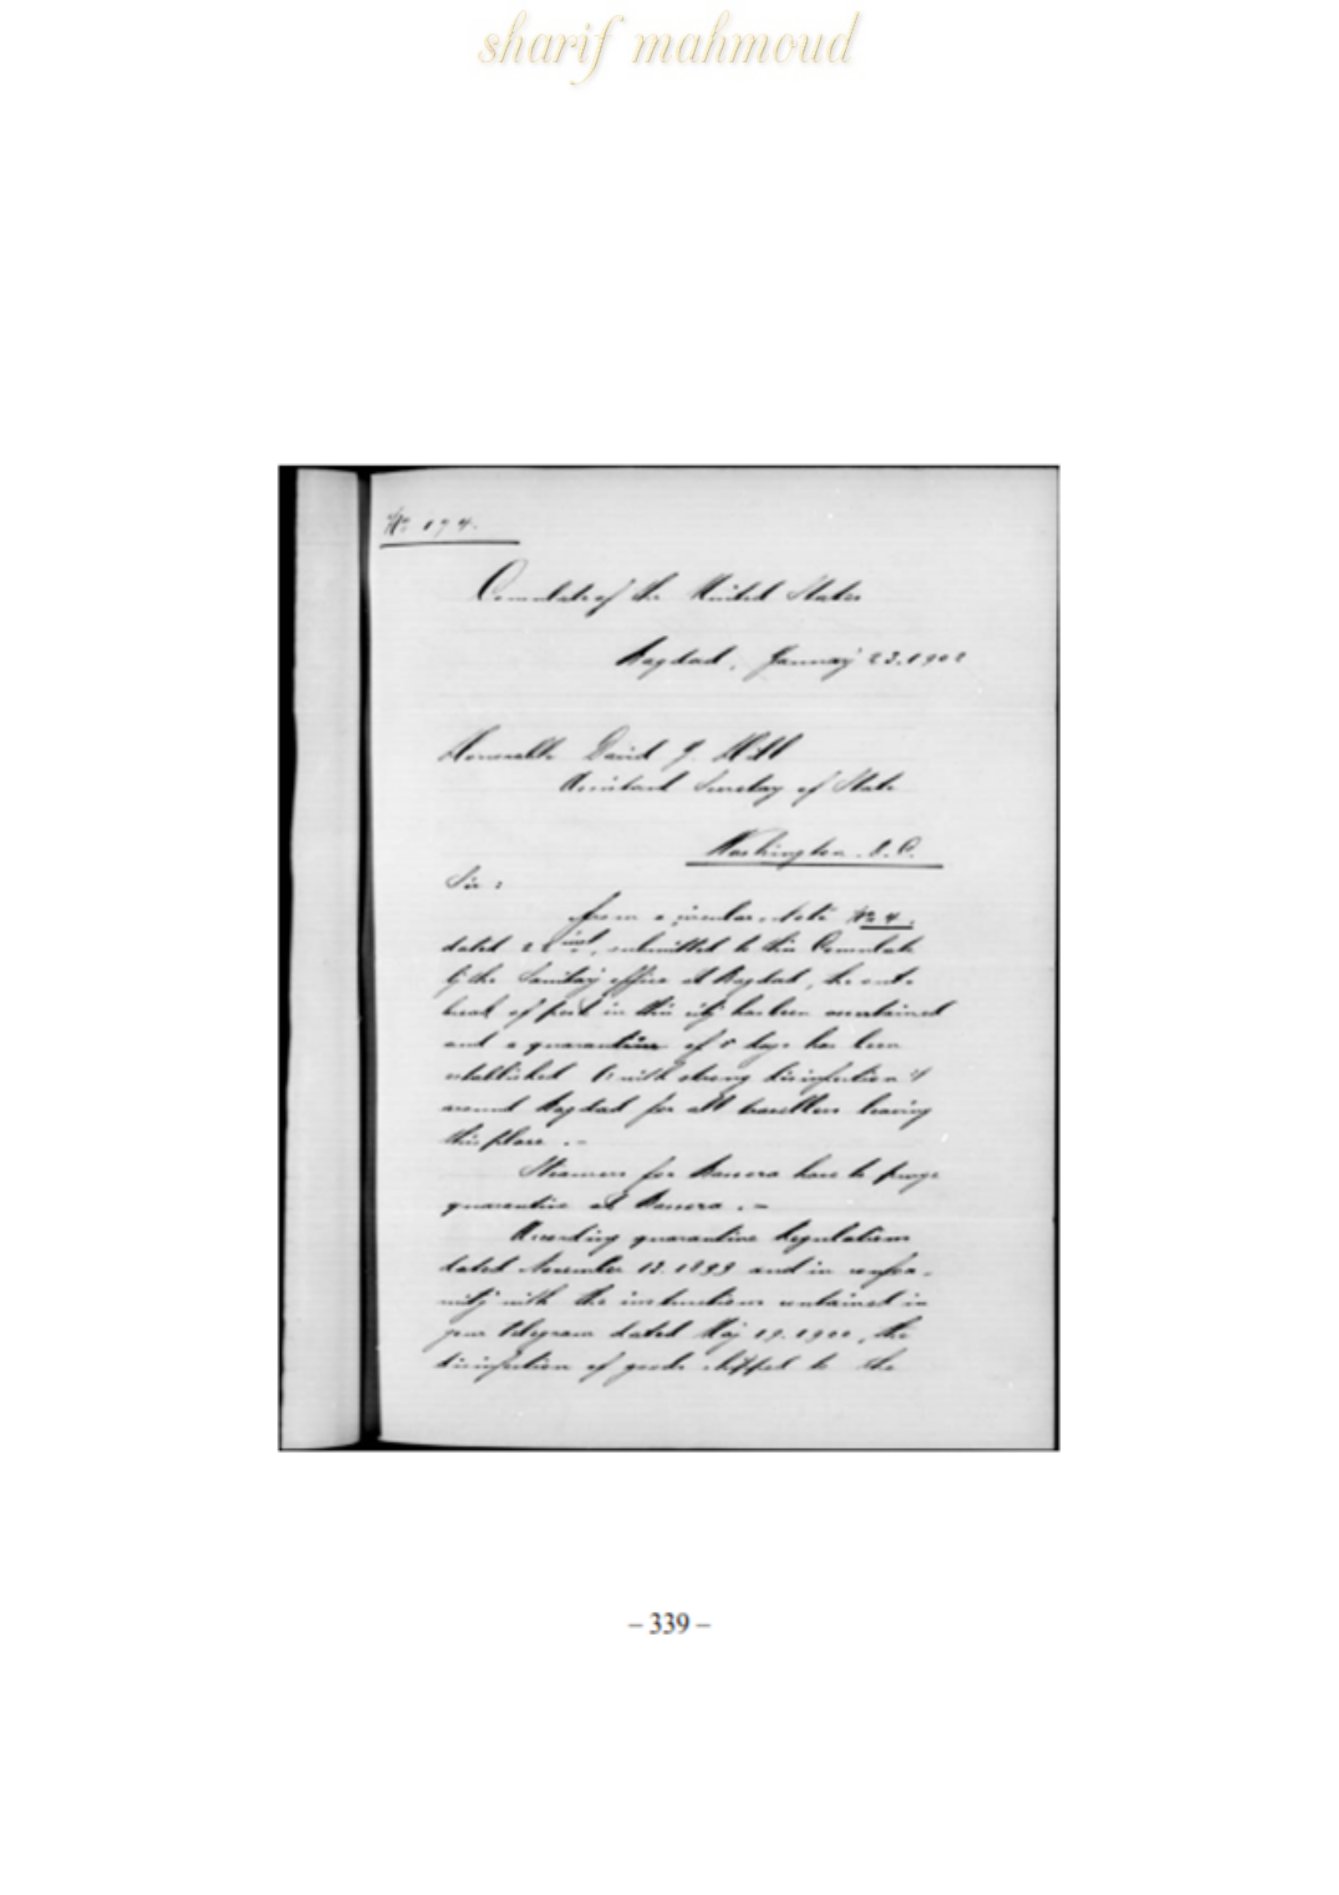 sharif mahmoud
No. 174.
Consulate of the United States
Bagdad, January 23. 1902
Honorable David J. Hill
Assistant Secretary of State
Washington. D.C.
Sir:
From a circular-note No. 4.
dated 22 inst., submitted to this Consulate
by the Sanitary office at Bagdad, the out-
break of pest in this city has been ascertained
and a quarantine of 5 days has been
established with strong disinfection
around Bagdad for all travellers leaving
this place.-
Steamers for Bassora have to purge
quarantine at Bassora.-
According quarantine Regulations
dated November 13. 1899 and in confor-
mity with the instructions contained in
your telegram dated May 19. 1900, the
disinfection of goods shipped to the
– 339 –